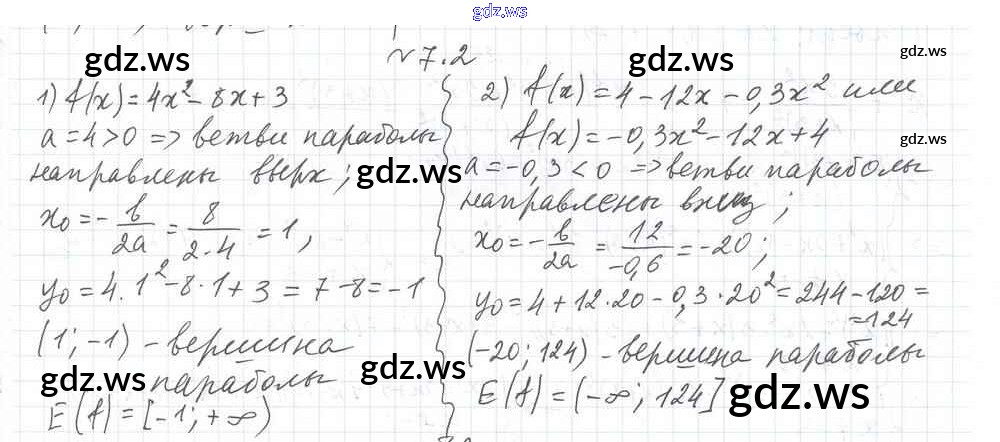 gdz.ws
№ 7.2
gdz.ws
gdz.ws
gdz.ws
1) f(x) = 4x² - 8x + 3
a = 4 > 0 => ветви параболы
направлены вверх;
gdz.ws
x₀ = - b/2a = 8/2·4 = 1,
y₀ = 4·1² - 8·1 + 3 = 7 - 8 = -1
(1; -1) - вершина
параболы
gdz.ws
gdz.ws
E(f) = [-1; +∞)
2) f(x) = 4 - 12x - 0,3x² или
f(x) = -0,3x² - 12x + 4
gdz.ws
a = -0,3 < 0 => ветви параболы
направлены вниз;
x₀ = - b/2a = 12/-0,6 = -20;
y₀ = 4 + 12·20 - 0,3·20² = 244 - 120 =
= 124
(-20; 124) - вершина параболы
E(f) = (-∞; 124]
gdz.ws